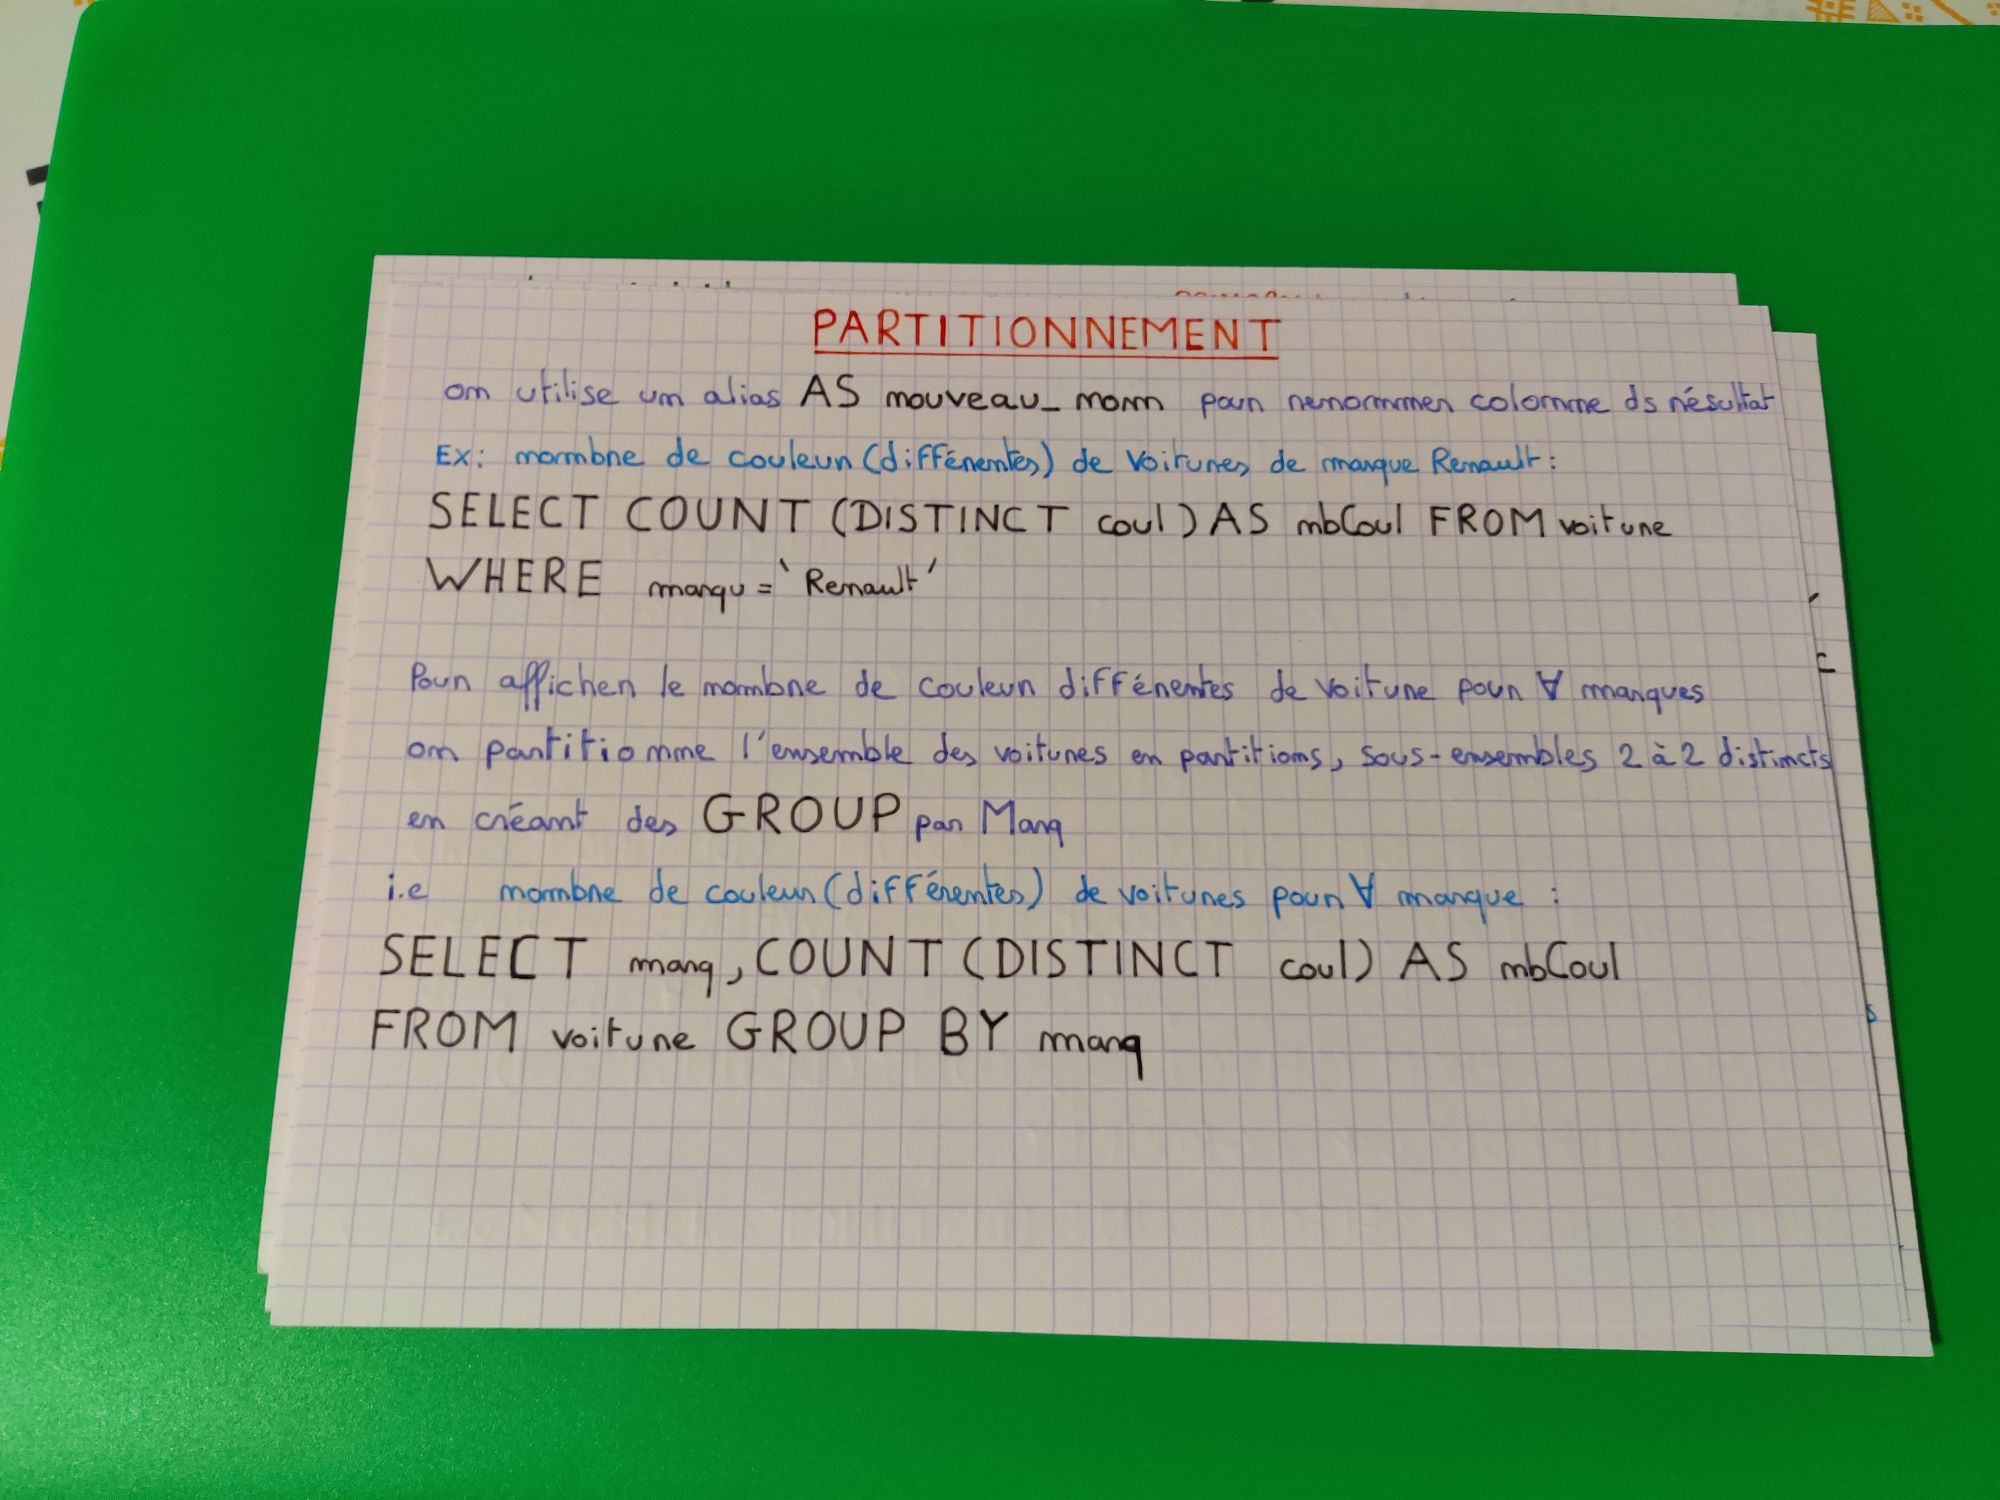 PARTITIONNEMENT
on utilise un alias AS nouveau_nom pour renommer colonne ds résultat
Ex: nombre de couleur (différentes) de voitures de marque Renault :
SELECT COUNT (DISTINCT coul) AS nbCoul FROM voiture
WHERE marqu = 'Renault'
Pour afficher le nombre de couleur différentes de voiture pour ∀ marques
on partitionne l'ensemble des voitures en partitions, sous-ensembles 2 à 2 distincts
en créant des GROUP par Marq
i.e nombre de couleur (différentes) de voitures pour ∀ marque :
SELECT marq, COUNT (DISTINCT coul) AS nbCoul
FROM voiture GROUP BY marq